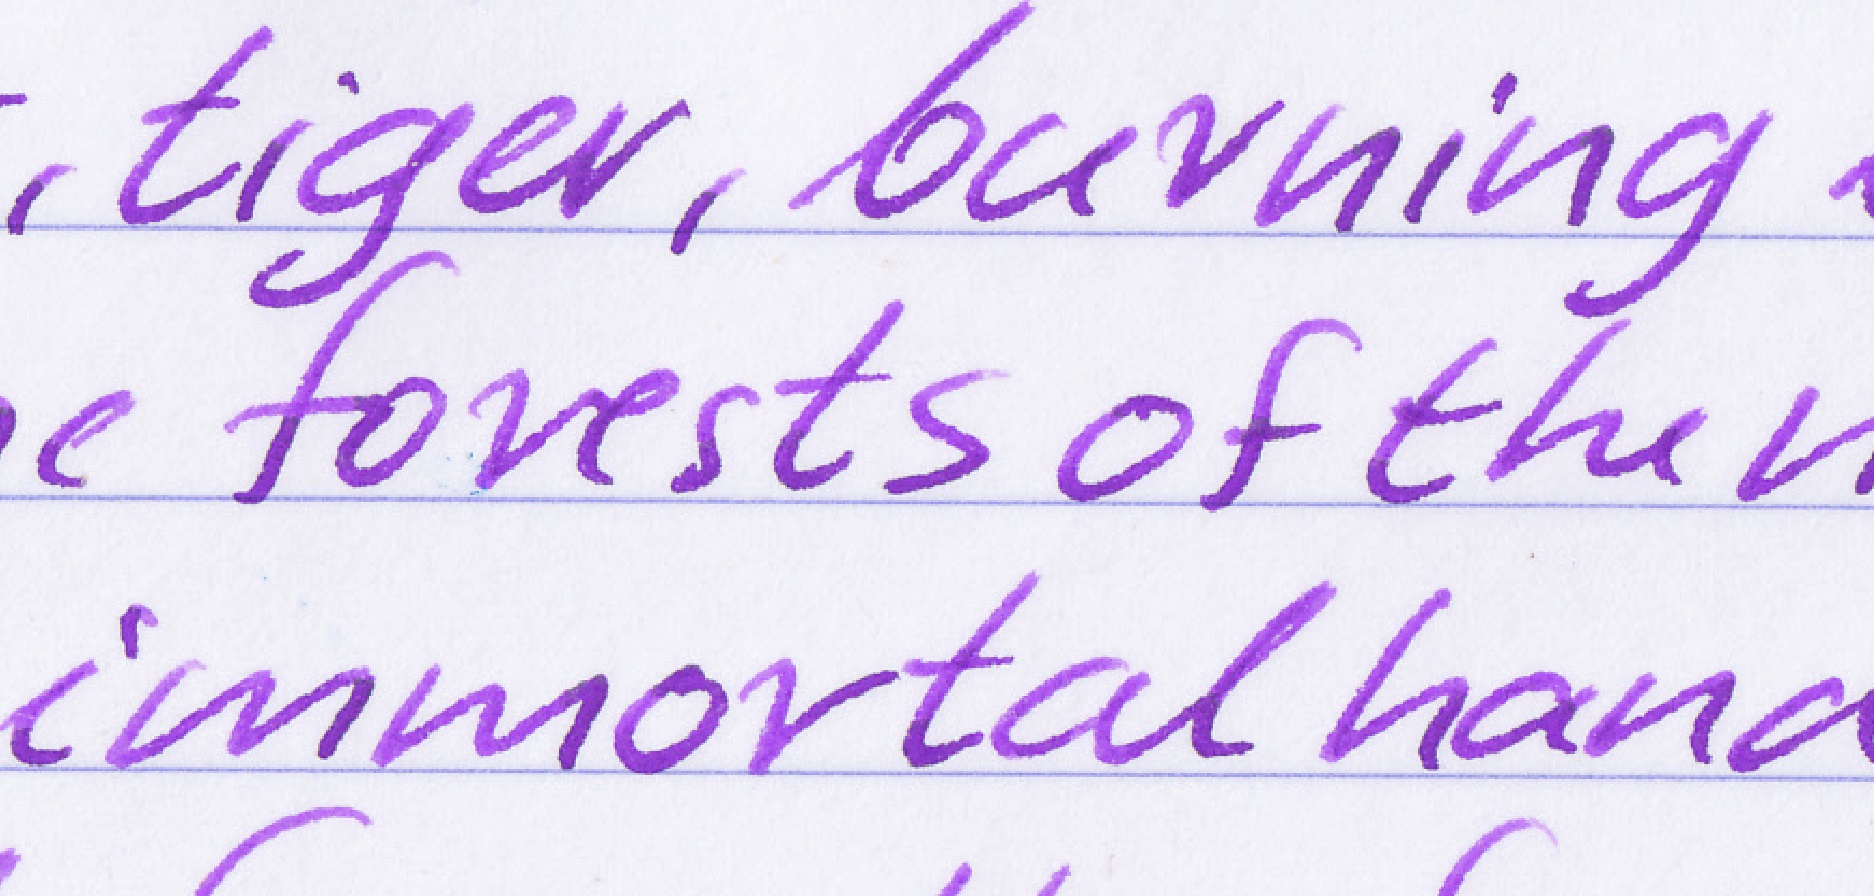 , tiger, burning
forests of the
immortal hand